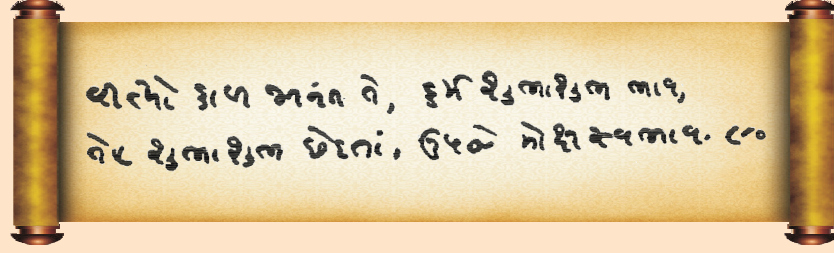 વીત્યો કાળ અનંત તે, કર્મ શુભાશુભ ભાવ,
તેહ શુભાશુભ છેદતાં, ઉપજે મોક્ષ સ્વભાવ. ૯૦